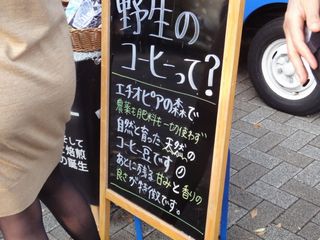 野生の
コーヒーって？
エチオピアの森で
農薬も肥料も一切使わず
自然と育った天然の
コーヒー豆です。
あとに残る甘みと香りの
良さが特徴です。
して
焙煎
の誕生